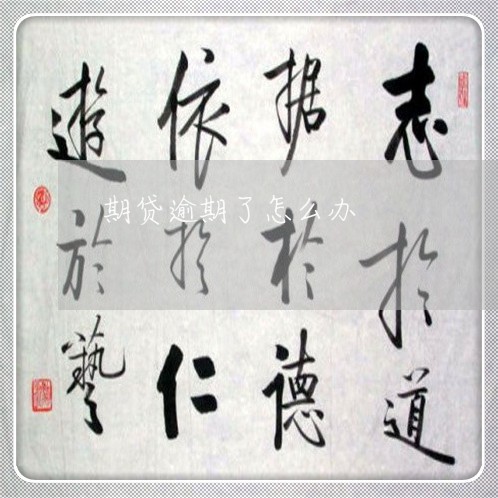 志於道
据於德
依於仁
遊於藝
期贷逾期了怎么办